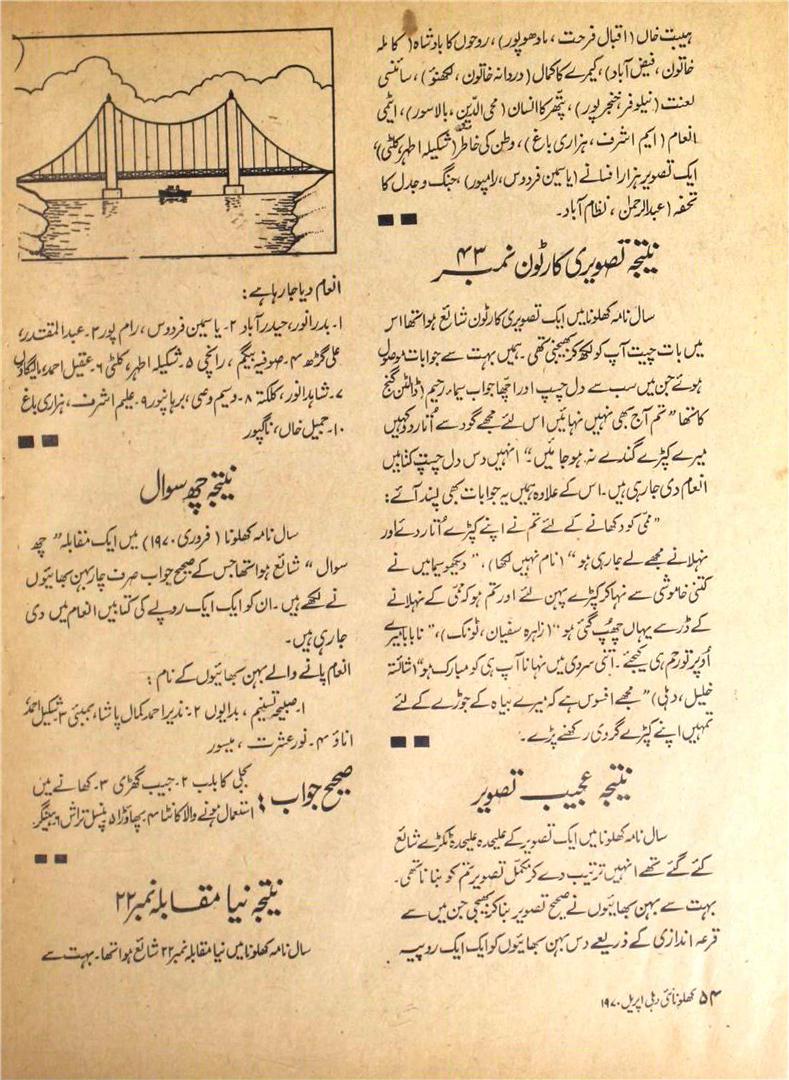 ہیبت خاں (اقبال فرحت، مادھوپور)، روحوں کا بادشاہ (کاملہ
خاتون، فیض آباد)، کیمرے کا کمال (دردانہ خاتون، لکھنؤ)، سائنسی
لعنت (نیلوفر خنجرپور)، پتھر کا انسان (محی الدین، بالاسور)، ایٹمی
انعام (ایم اشرف، ہزاری باغ)، وطن کی خاطر (شکیلہ اطہر، کلٹی)،
ایک تصویر ہزار افسانے (یاسمین فردوس، رامپور)، جنگ و جدل کا
تحفہ (عبدالرحمٰن، نظام آباد)۔
نتیجہ تصویری کارٹون نمبر ۴۳
سال نامہ کھلونا میں ایک تصویری کارٹون شائع ہوا تھا اس
میں بات چیت آپ کو لکھ کر بھیجنی تھی۔ ہمیں بہت سے جوابات موصول
ہوئے جن میں سب سے دل چسپ اور اچھا جواب سیما رحیم (ڈالٹن گنج)
کا تھا "تم آج بھی نہیں نہائیں اس لئے مجھے گود سے اُتار دو کہیں
میرے کپڑے گندے نہ ہو جائیں۔" انہیں دس دل چسپ کتابیں
انعام دی جا رہی ہیں۔ اس کے علاوہ ہمیں یہ جوابات بھی پسند آئے:
"ممی کو دکھانے کے لئے تم نے اپنے کپڑے اُتار دئے اور
نہلانے مجھے لے جا رہی ہو" (نام نہیں لکھا)، "دیکھو سیما میں نے
کتنی خاموشی سے نہا کر کپڑے پہن لئے اور تم ہو کہ ممی کے نہلانے
کے ڈر سے یہاں چھپ گئی ہو" (زاہرہ سفیان، ٹونک)، "نا بابا میرے
اُوپر تو رحم ہی کیجئے۔ اتنی سردی میں نہانا آپ ہی کو مبارک ہو" (شائستہ
خلیل، دہلی) "مجھے افسوس ہے کہ میرے بیاہ کے جوڑے کے لئے
تمہیں اپنے کپڑے گروی رکھنے پڑے۔
نتیجہ عجیب تصویر
سال نامہ کھلونا میں ایک تصویر کے علیحدہ علیحدہ ٹکڑے شائع
کئے گئے تھے انہیں ترتیب دے کر مکمل تصویر تم کو بنانا تھی۔
بہت سے بہن بھائیوں نے صحیح تصویر بنا کر بھیجی جن میں سے
قرعہ اندازی کے ذریعے دس بہن بھائیوں کو ایک ایک روپیہ
انعام دیا جا رہا ہے:
۱۔ بدر انور، حیدرآباد ۲۔ یاسمین فردوس، رام پور ۳۔ عبدالمقتدر،
علی گڑھ ۴۔ صوفیہ بیگم، رانچی ۵۔ شکیلہ اطہر، کلٹی ۶۔ عقیل احمد، مالیگاؤں
۷۔ شاہد انور، کلکتہ ۸۔ وسیم وصی، برہانپور ۹۔ علیم اشرف، ہزاری باغ
۱۰۔ جمیل خاں، ناگپور
نتیجہ چھ سوال
سال نامہ کھلونا (فروری ۱۹۷۰) میں ایک مقابلہ "چھ
سوال" شائع ہوا تھا جس کے صحیح جواب صرف چار بہن بھائیوں
نے لکھے ہیں۔ ان کو ایک ایک روپے کی کتابیں انعام میں دی
جا رہی ہیں۔
انعام پانے والے بہن بھائیوں کے نام:
۱۔ صلیحہ تسنیم، بدایوں ۲۔ نذیر احمد کمال پاشا، بمبئی ۳۔ شکیل احمد،
اناؤ ۴۔ نور عشرت، میسور
صحیح جواب: بجلی کا بلب ۲۔ جیب گھڑی ۳۔ کھانے میں
استعمال ہونے والا کانٹا ۴۔ پھاوڑا ۵۔ پنسل تراش ۶۔ ہینگر
نتیجہ نیا مقابلہ نمبر ۲۲
سال نامہ کھلونا میں نیا مقابلہ نمبر ۲۲ شائع ہوا تھا۔ بہت سے
۵۴ کھلونا نئی دہلی اپریل ۱۹۷۰